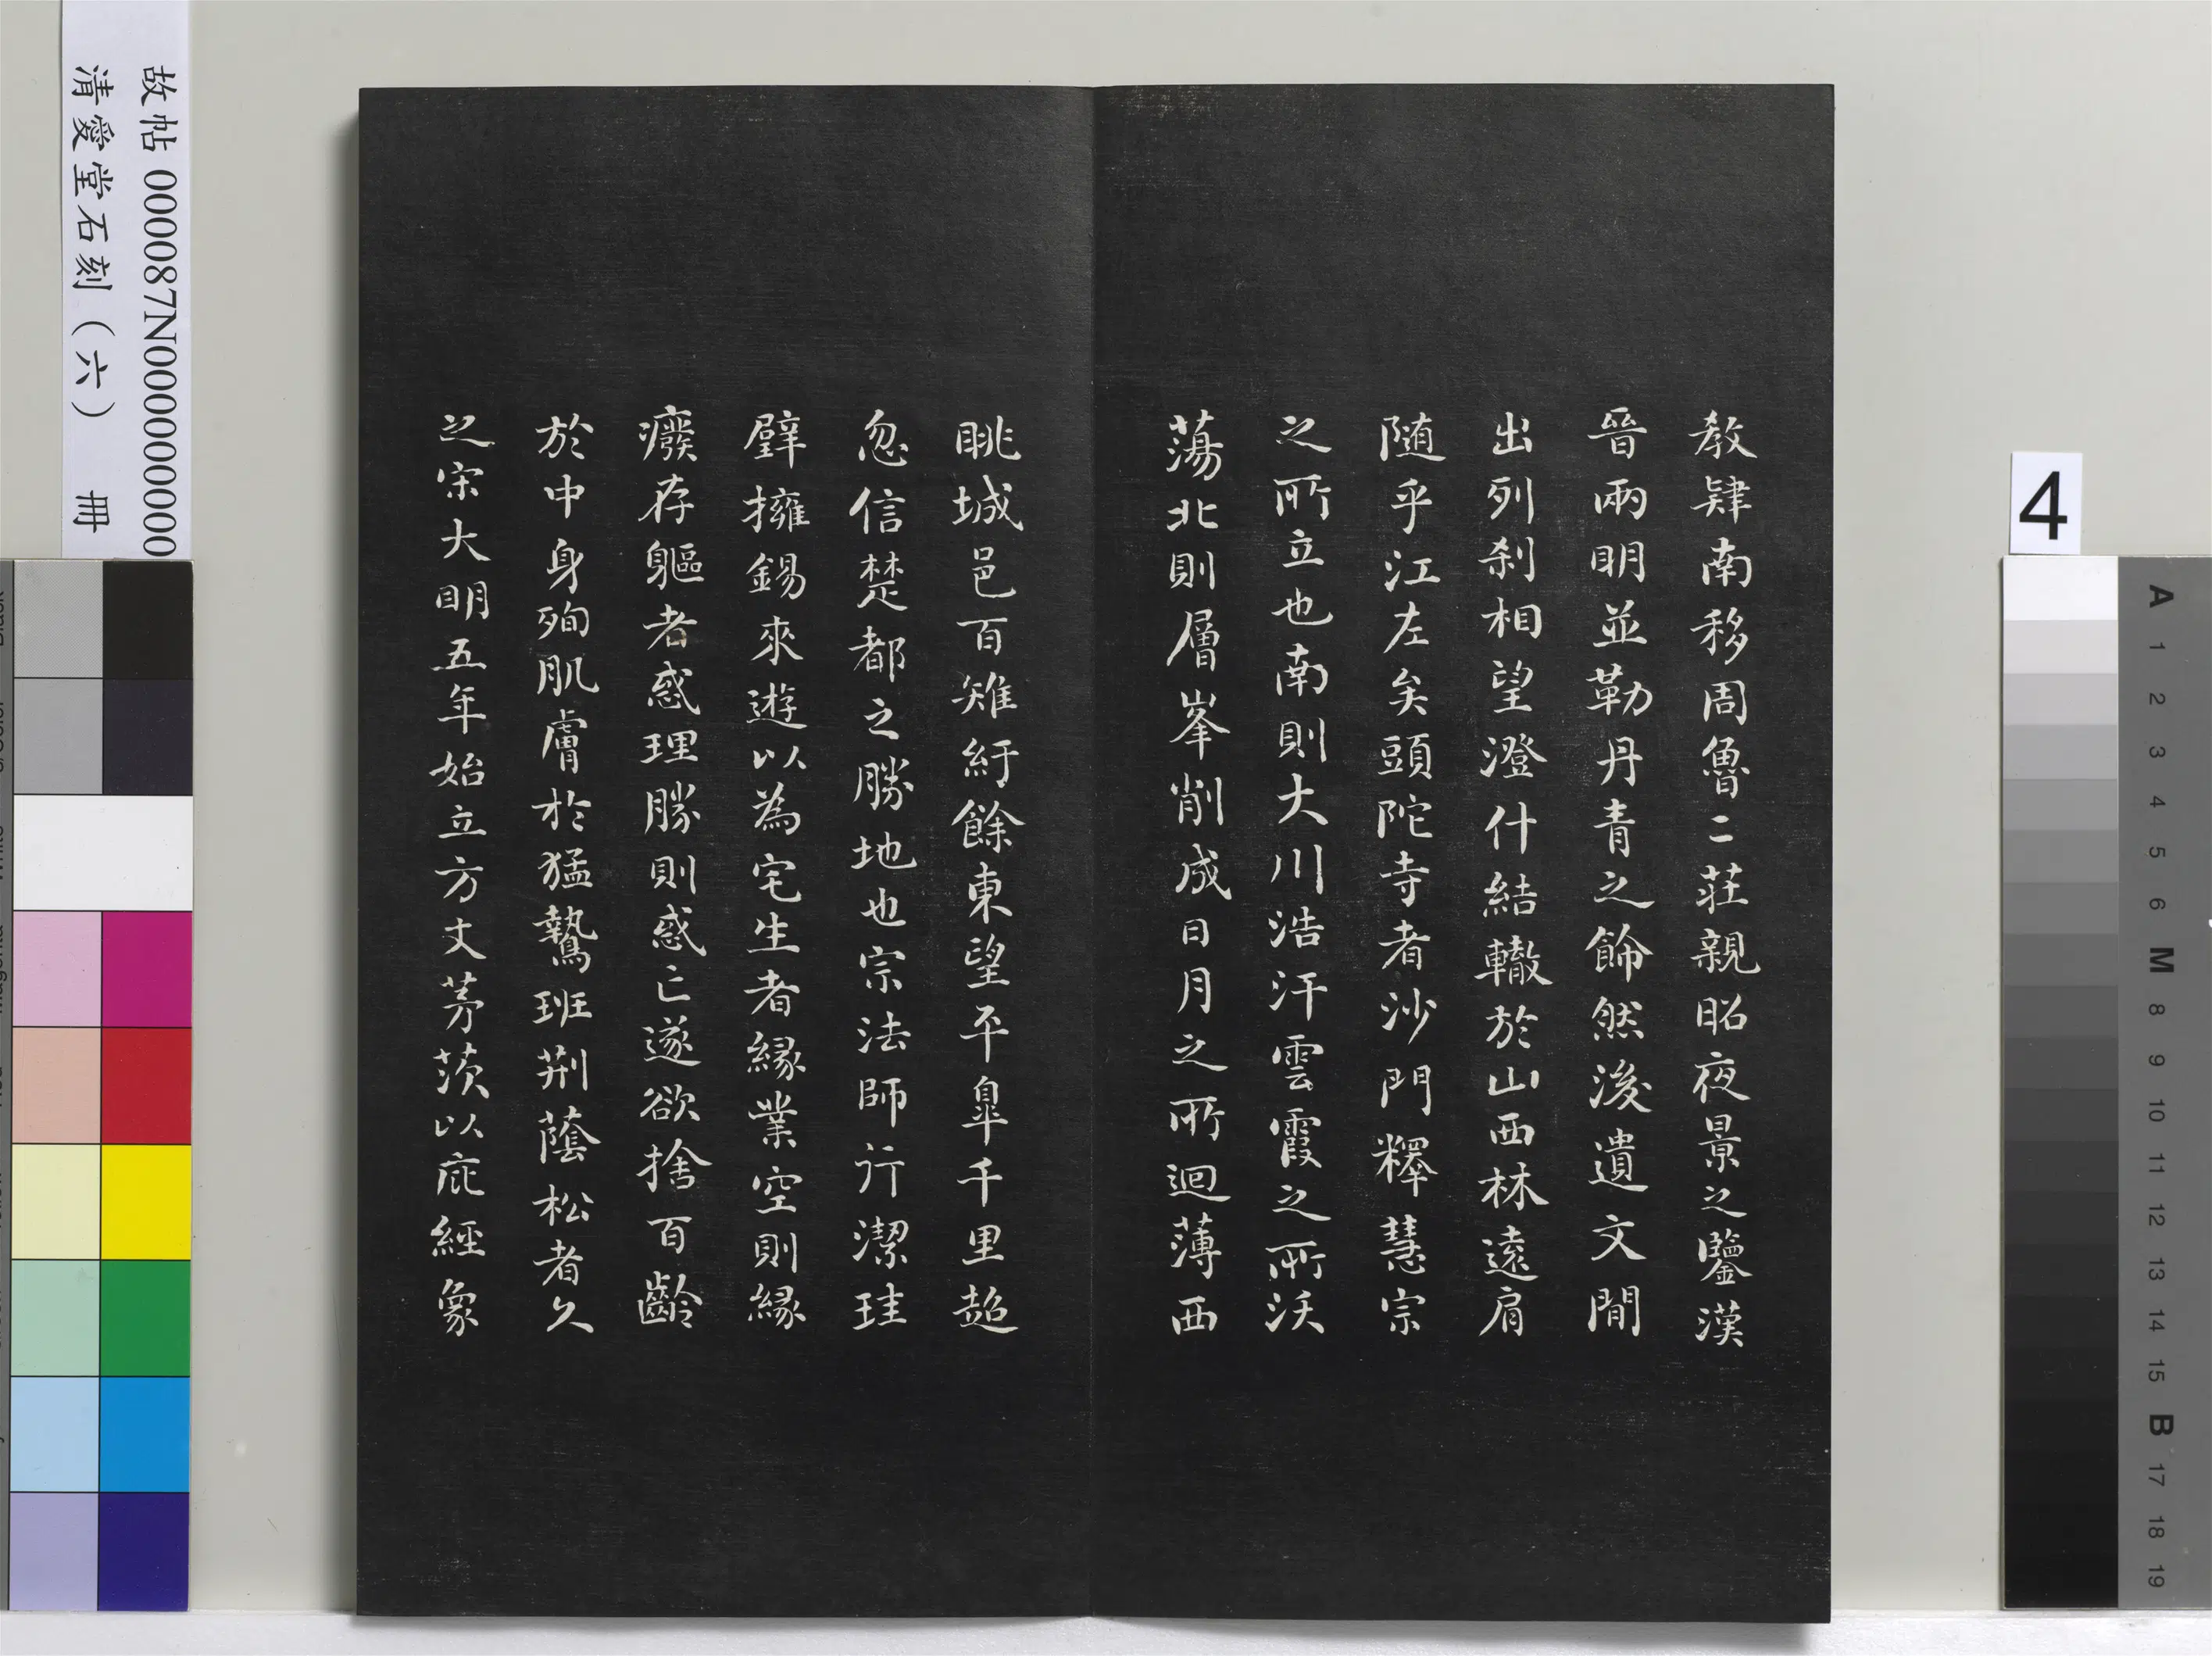 教肄南移周魯二莊親昭夜景之鑒漢
晉兩明並勒丹青之飾然後遺文間
出列刹相望澄什結轍於山西林遠肩
随乎江左矣頭陀寺者沙門釋慧宗
之所立也南則大川浩汗雲霞之所沃
蕩北則層峯削成日月之所迴薄西
眺城邑百雉紆餘東望平皐千里超
忽信楚都之勝地也宗法師行潔珪
璧擁錫來遊以為宅生者緣業空則緣
癈存軀者惑理勝則惑亡遂欲捨百齡
於中身殉肌膚於猛鷙班荆蔭松者久
之宋大明五年始立方丈茅茨以庇經象
故帖 000087N000000000
清愛堂石刻（六） 冊
4
A 1 2 3 4 5 6 M 8 9 10 11 12 13 14 15 B 17 18 19